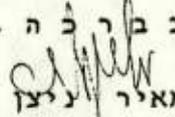 ב ב ר כ ה
מאיר ניצן